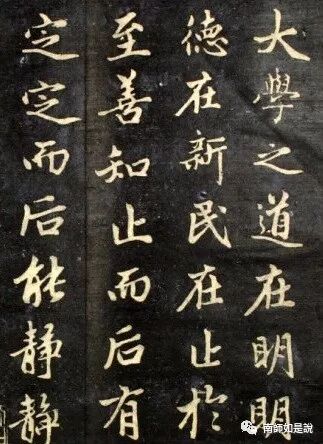 大學之道在明明
德在新民在止於
至善知止而后有
定定而后能静静
南師如是說